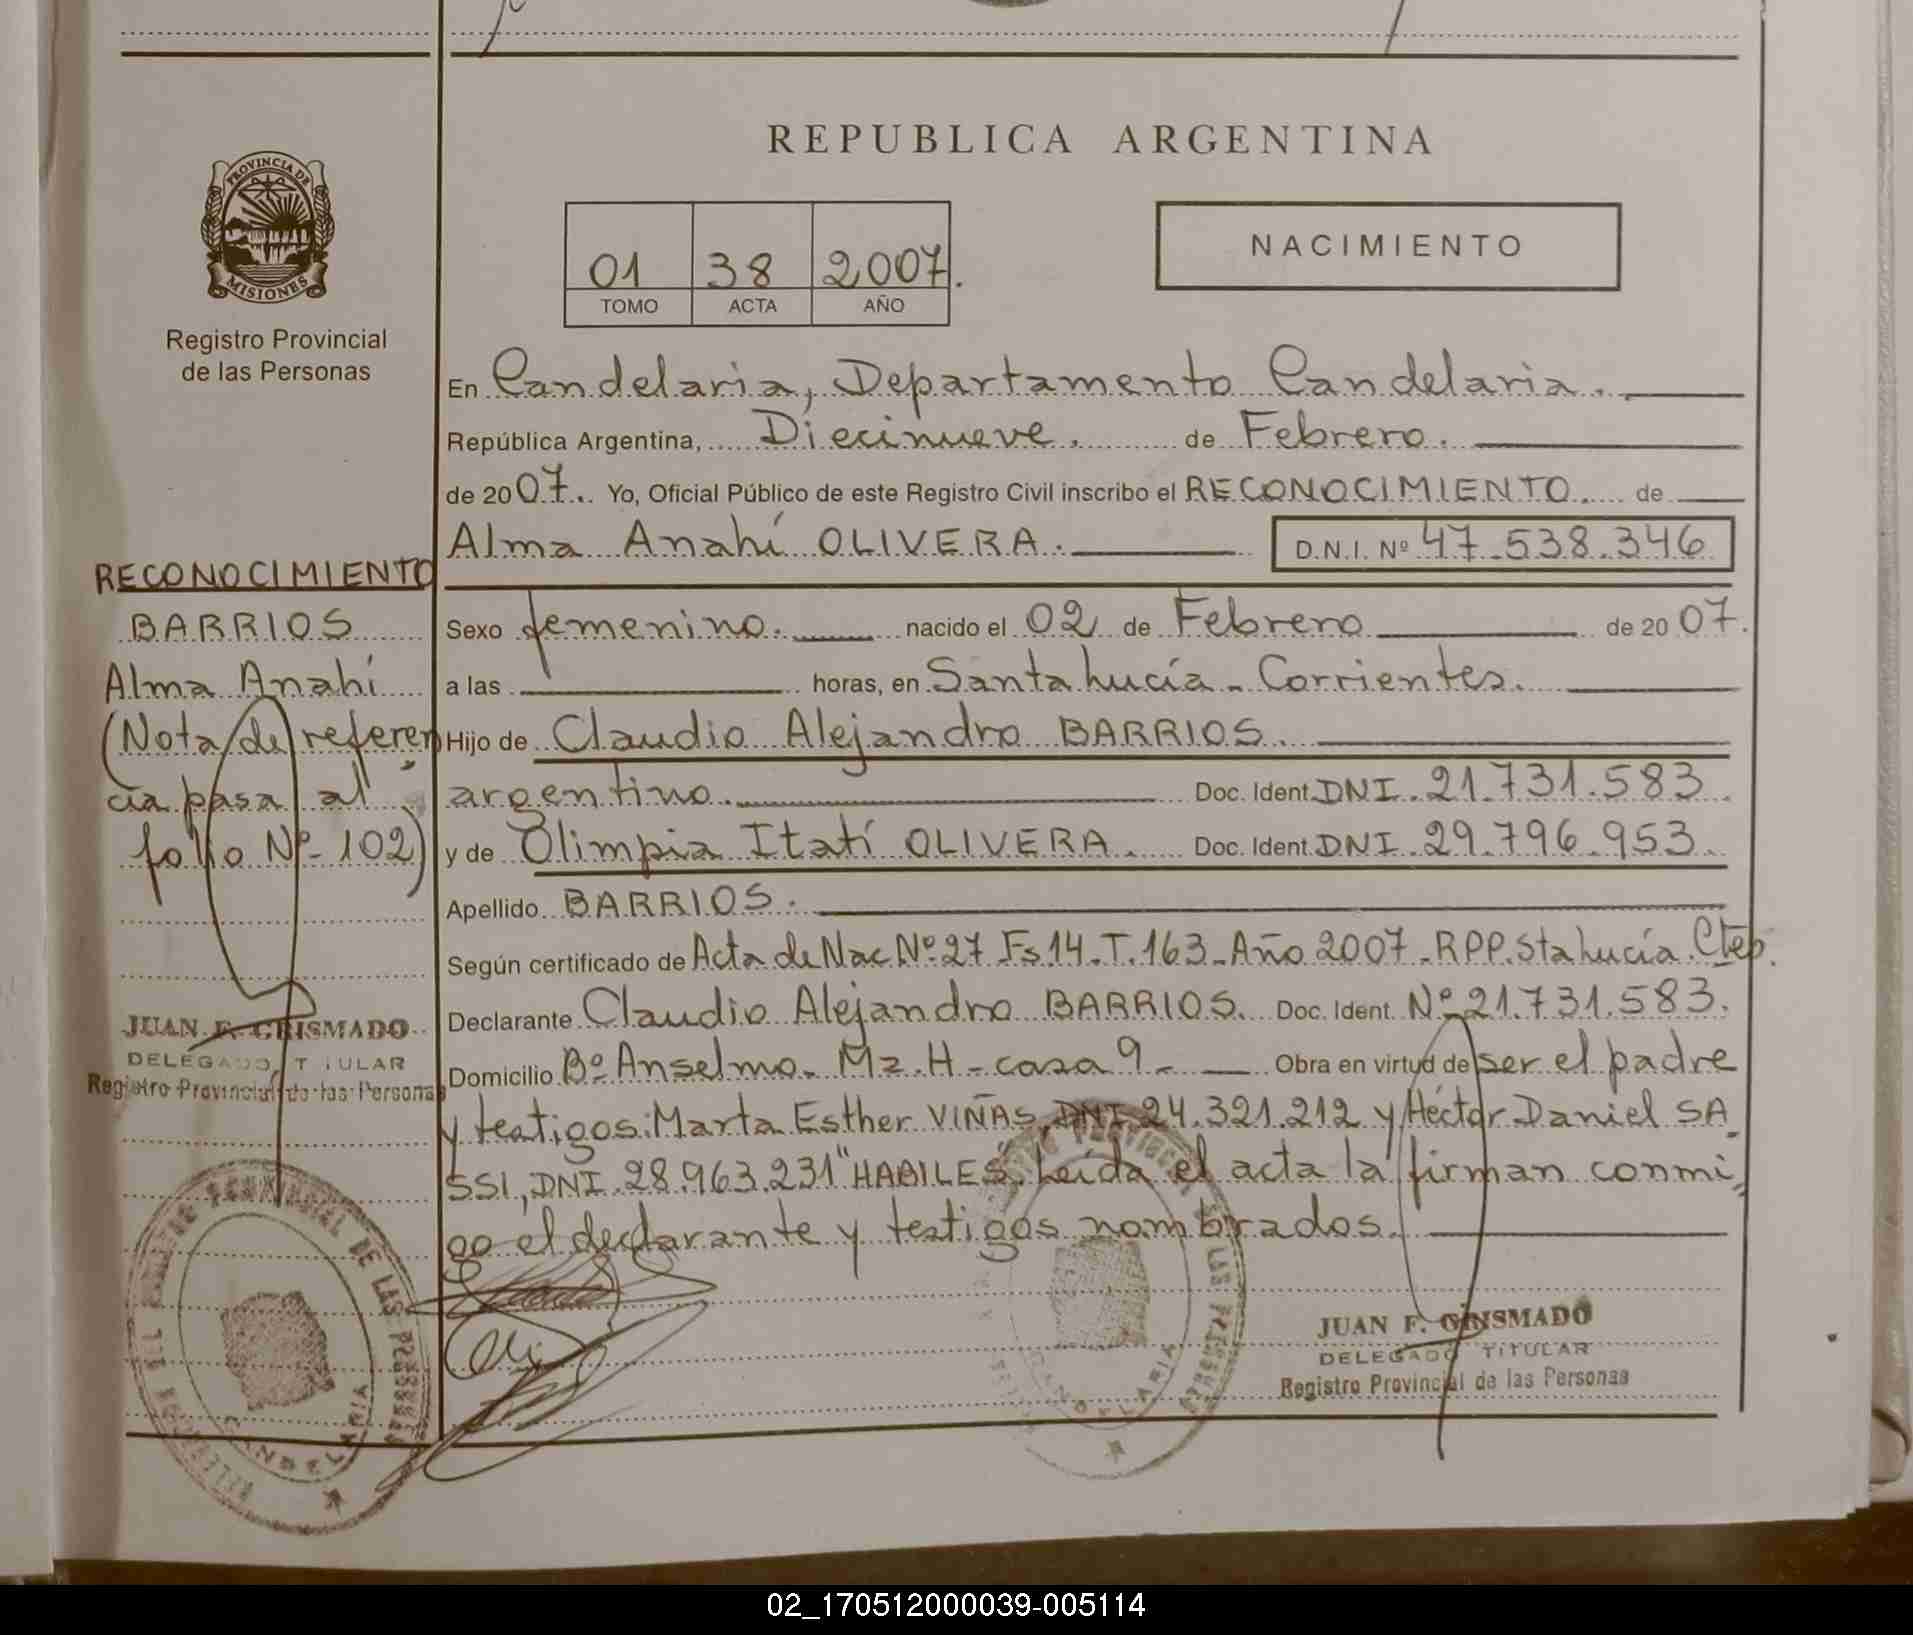 PROVINCIA DE
MISIONES
Registro Provincial
de las Personas
RECONOCIMIENTO
BARRIOS
Alma Anahí
(Nota de referen
cia pasa al
folio Nº 102)
JUAN F. GRISMADO
DELEGADO TITULAR
Registro Provincial de las Personas
REPUBLICA ARGENTINA
01 38 2007.
TOMO ACTA AÑO
NACIMIENTO
En Candelaria, Departamento Candelaria.
República Argentina, Diecinueve. de Febrero.
de 2007. Yo, Oficial Público de este Registro Civil inscribo el RECONOCIMIENTO. de
Alma Anahí OLIVERA. D.N.I. Nº 47.538.346
Sexo femenino. nacido el 02 de Febrero de 2007.
a las horas, en Santa Lucía - Corrientes.
Hijo de Claudio Alejandro BARRIOS.
argentino. Doc. Ident. DNI. 21.731.583.
y de Olimpia Itatí OLIVERA. Doc. Ident. DNI. 29.796.953.
Apellido BARRIOS.
Según certificado de Acta de Nac Nº 27 Fs 14 - T. 163 - Año 2007 - RPP. Sta Lucía. Ctes.
Declarante Claudio Alejandro BARRIOS. Doc. Ident. Nº 21.731.583.
Domicilio Bº Anselmo - Mz. H - casa 9 - Obra en virtud de ser el padre
y testigos: Marta Esther VIÑAS, DNI 24.321.212 y Héctor Daniel SA
SSI, DNI. 28.963.231 "HABILES". Leída el acta la firman conmi
go el declarante y testigos nombrados.
CANDELARIA
CANDELARIA
JUAN F. GRISMADO
DELEGADO TITULAR
Registro Provincial de las Personas
02_170512000039-005114